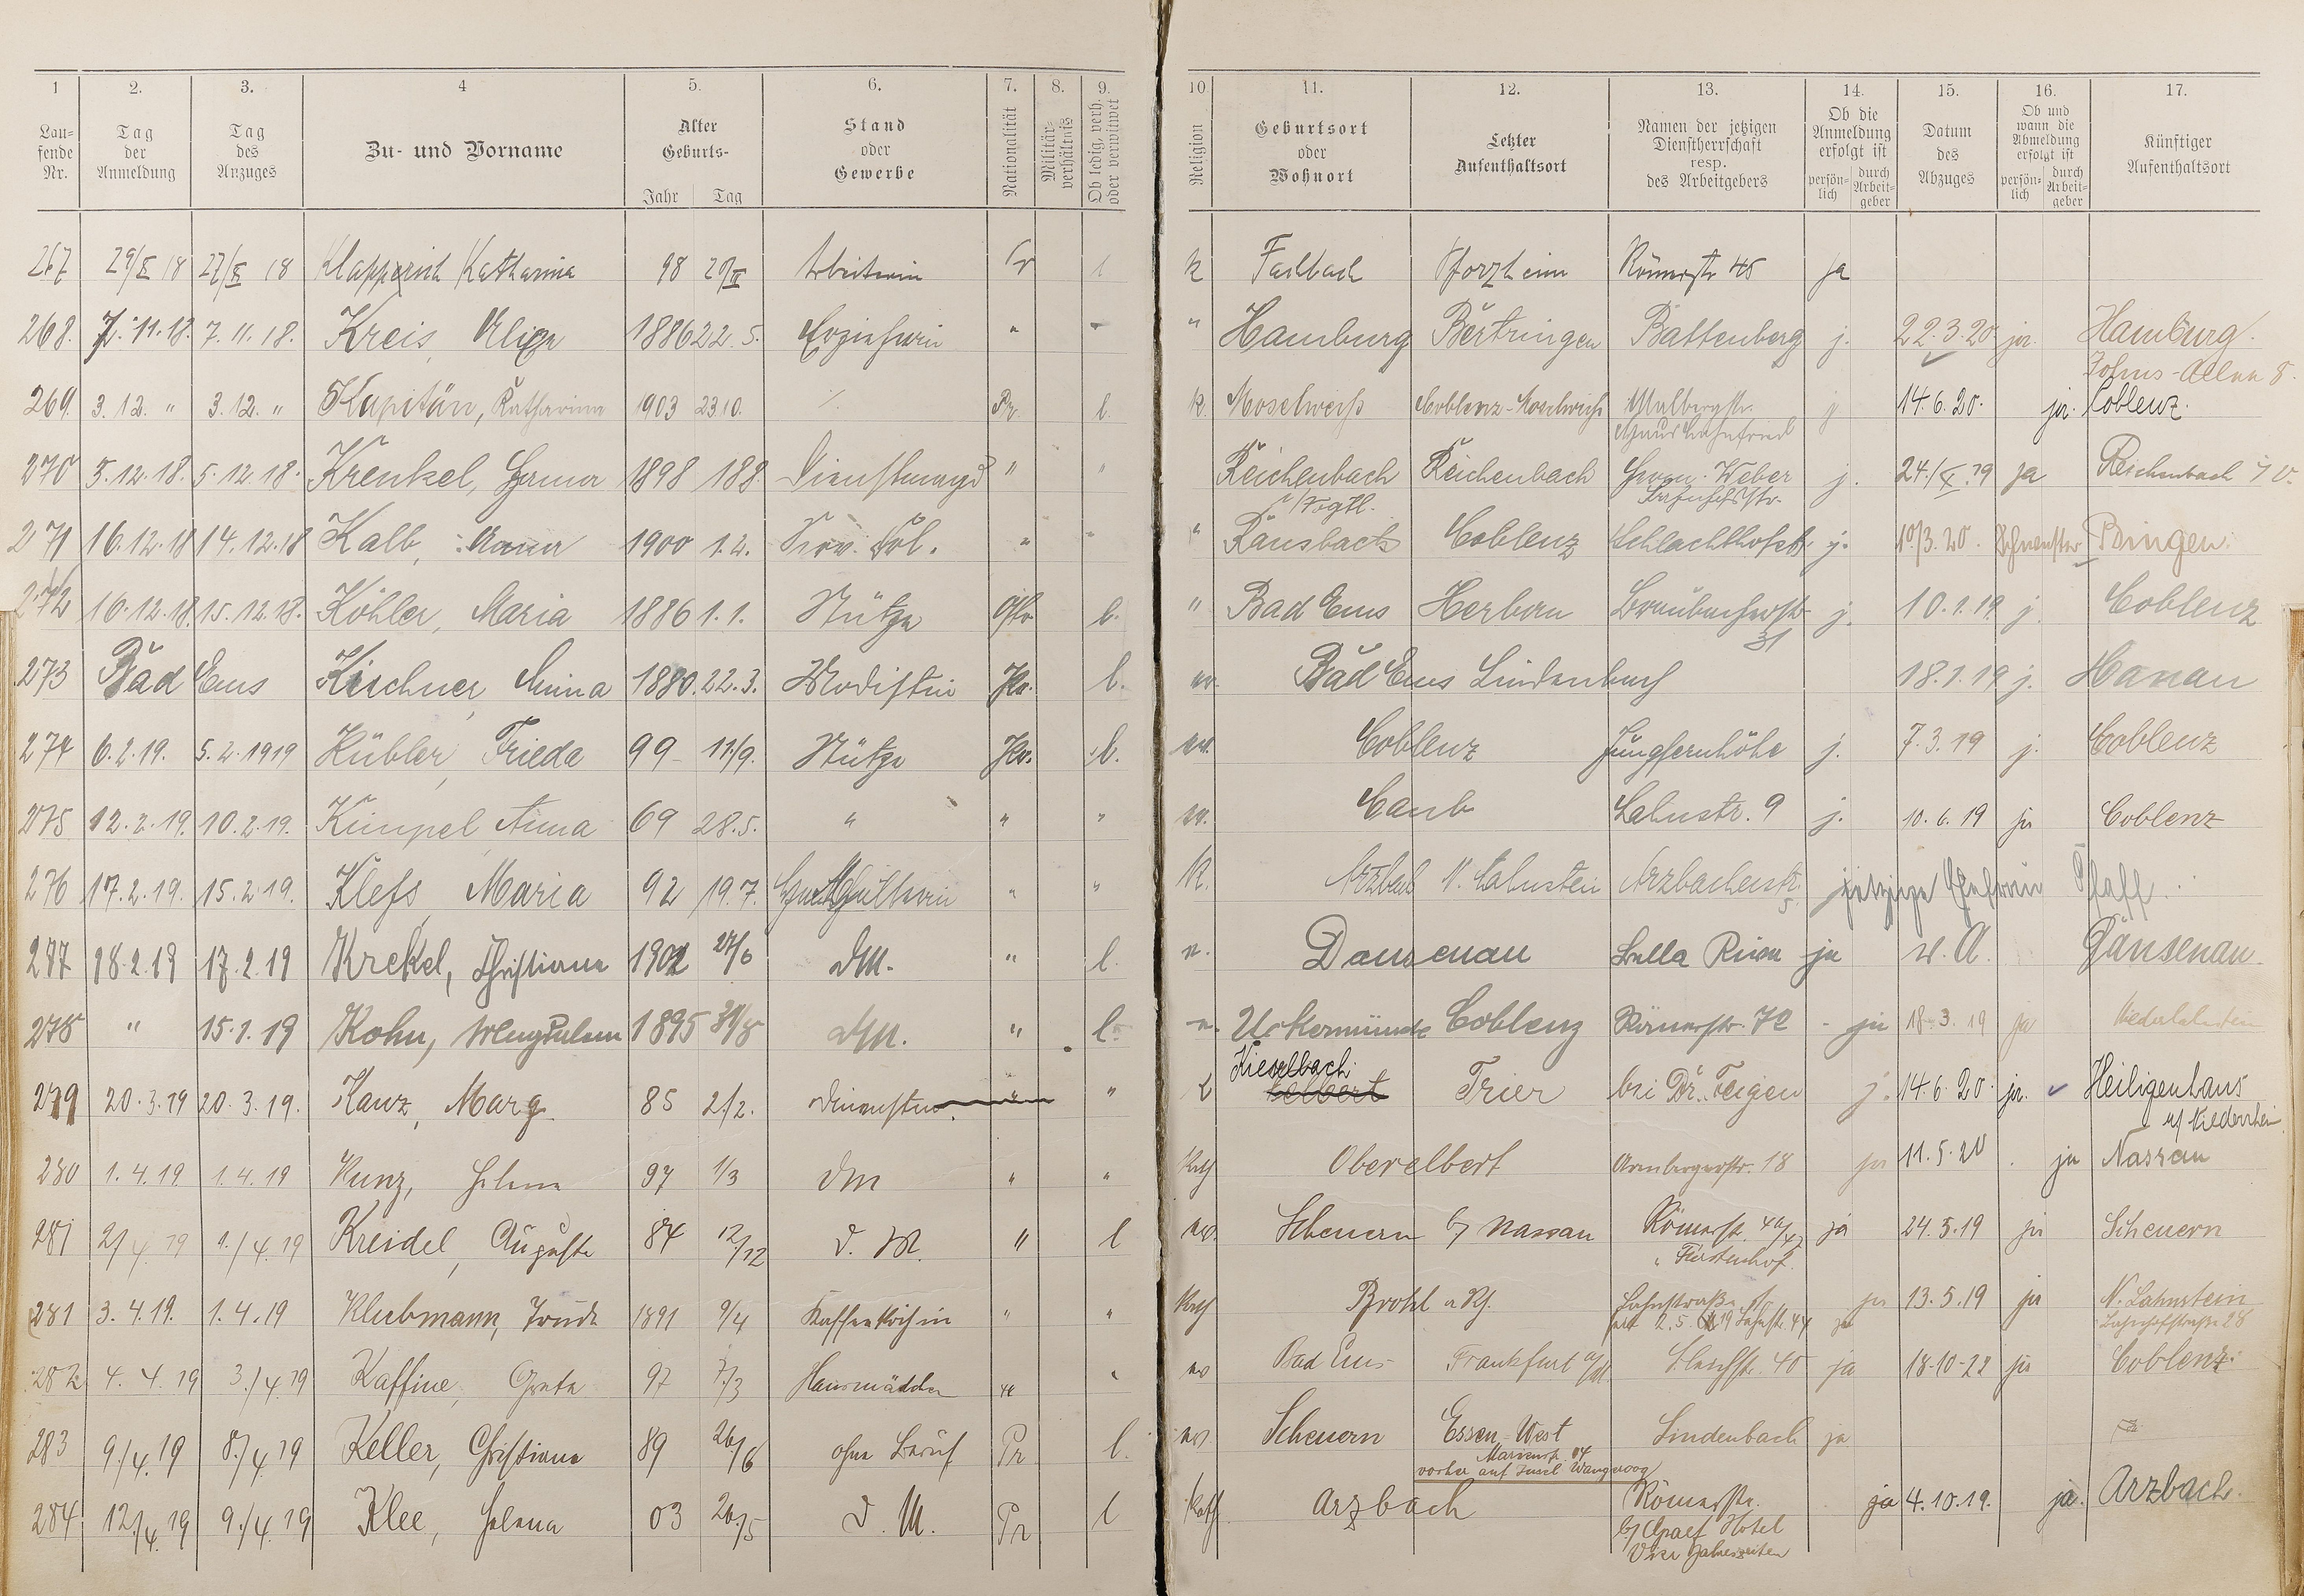 1 2. 3. 4 5. 6. 7. 8. 9. 10 11. 12. 13. 14. 15. 16. 17.
Lau-
fende
Nr.
Tag
der
Anmeldung
Tag
des
Anzuges
Zu- und Vorname
Alter
Geburts-
Jahr Tag
Stand
oder
Gewerbe
Nationalität
Militär-
verhältnis
Ob ledig, verh.
oder verwitwet
Religion
Geburtsort
oder
Wohnort
Letzter
Aufenthaltsort
Namen der jetzigen
Dienstherrschaft
resp.
des Arbeitgebers
Ob die
Anmeldung
erfolgt ist
persön-
lich
durch
Arbeit-
geber
Datum
des
Abzuges
Ob und
wann die
Abmeldung
erfolgt ist
persön-
lich
durch
Arbeit-
geber
Künftiger
Aufenthaltsort
267 29/X 18 27/X 18 Klapperich Katharina 98 Arbeiterin Pr l k Fachbach Pforzheim Römerstr 45 ja
268. 7.11.18. 7.11.18. Kreis, 1886 22.5. Erzieherin " " Hamburg Bertringen Battenberg j. 22.3.20 ja. Hamburg.
8.
269. 3.12. " 3.12. " Kapitän, Katharina 1903 23.10. Pr. l. k. Moselweiß Coblenz-Moselweiß j 14.6.20. ja. Coblenz.
270 5.12.18. 5.12.18. Krenkel, 1898 18.8. Dienstmagd " " Reichenbach Reichenbach Weber j. 24./X.19 ja Reichenbach i V.
i/Vogtl. Bahnhofstr.
271 16.12.18 14.12.18 Kalb, Anna 1900 1.2. " " " Ransbach Coblenz Schlachthofstr. j. 10/3.20. Bingen.
272 16.12.18. 15.12.18. Köhler, Maria 1886 1.1. Stütze l. " Bad Ems Herborn Braubacherstr. j. 10.1.19 j. Coblenz
31
273 Bad Ems Kirchner, Anna 1880. 22.3. Modistin Pr. l. ev. Bad Ems Lindenbach 18.1.19 j. Hanau
274 6.2.19. 5.2.1919 Kübler, Frieda 99 11/9. Stütze Pr. l. ev. Coblenz Jungfernhöhe j. 7.3.19 j. Coblenz
275 12.2.19. 10.2.19. Kimpel Anna 69 28.5. " " " ev. Caub Lahnstr. 9 j. 10.6.19 ja Coblenz
276 17.2.19. 15.2.19. Klefs, Maria 92 19.7. " " K. Arzbach N. Lahnstein Arzbacherstr. jetzige Ehefrau Pfaff.
5
277 18.2.19 17.2.19 Krekel, Christiane 1902 27/6 DM. " l. e. Dausenau Bella Riva ja Dausenau
278 " 15.1.19 Kohn, 1895 DM. " l. e. Uckermünde Coblenz Römerstr. 72 ja 18.3.19 ja Niederlahnstein
279 20.3.19 20.3.19. Kanz, Marg. 85 2/2. " " Kieselbach Trier bei Dr. Feigen j. 14.6.20. ja. Heiligenhaus
a/ Niederrhein
280 1.4.19 1.4.19 Kunz, Helene 97 1/3 DM " " Kath Oberelbert Arenbergerstr. 18 ja 11.5.20 ja Nassau
281 2/4.19 1./4.19 Kreidel, Auguste 84 12/12 D. M. " l ev. Scheuern b/ Nassau Römerstr. ja 24.5.19 ja Scheuern
" Fürstenhof.
281 3.4.19. 1.4.19 Kliebmann, Trude 1891 9/4 Kaffeeköchin " " Kath Brohl a Rh. Lahnstraße ja 13.5.19 ja N. Lahnstein
2.5.19 Lahnstr. 44 ja Bahnhofstraße 28
282 4.4.19 3./4.19 Kaffine, Greta 97 7/3 Hausmädchen " " ev Bad Ems Frankfurt a/M. 40 ja 18-10-22 ja Coblenz.
283 9./4.19 8./4.19 Keller, Christiane 89 26/6 ohne Beruf Pr l. ev. Scheuern Essen-West Lindenbach ja
vorher auf Insel Wangeroog
284 12./4.19 9./4.19 Klee, Helena 03 26./5 D. M. Pr l Kath. Arzbach Römerstr. ja 4.10.19. ja. Arzbach.
b/ Graef Hotel
Vier Jahreszeiten